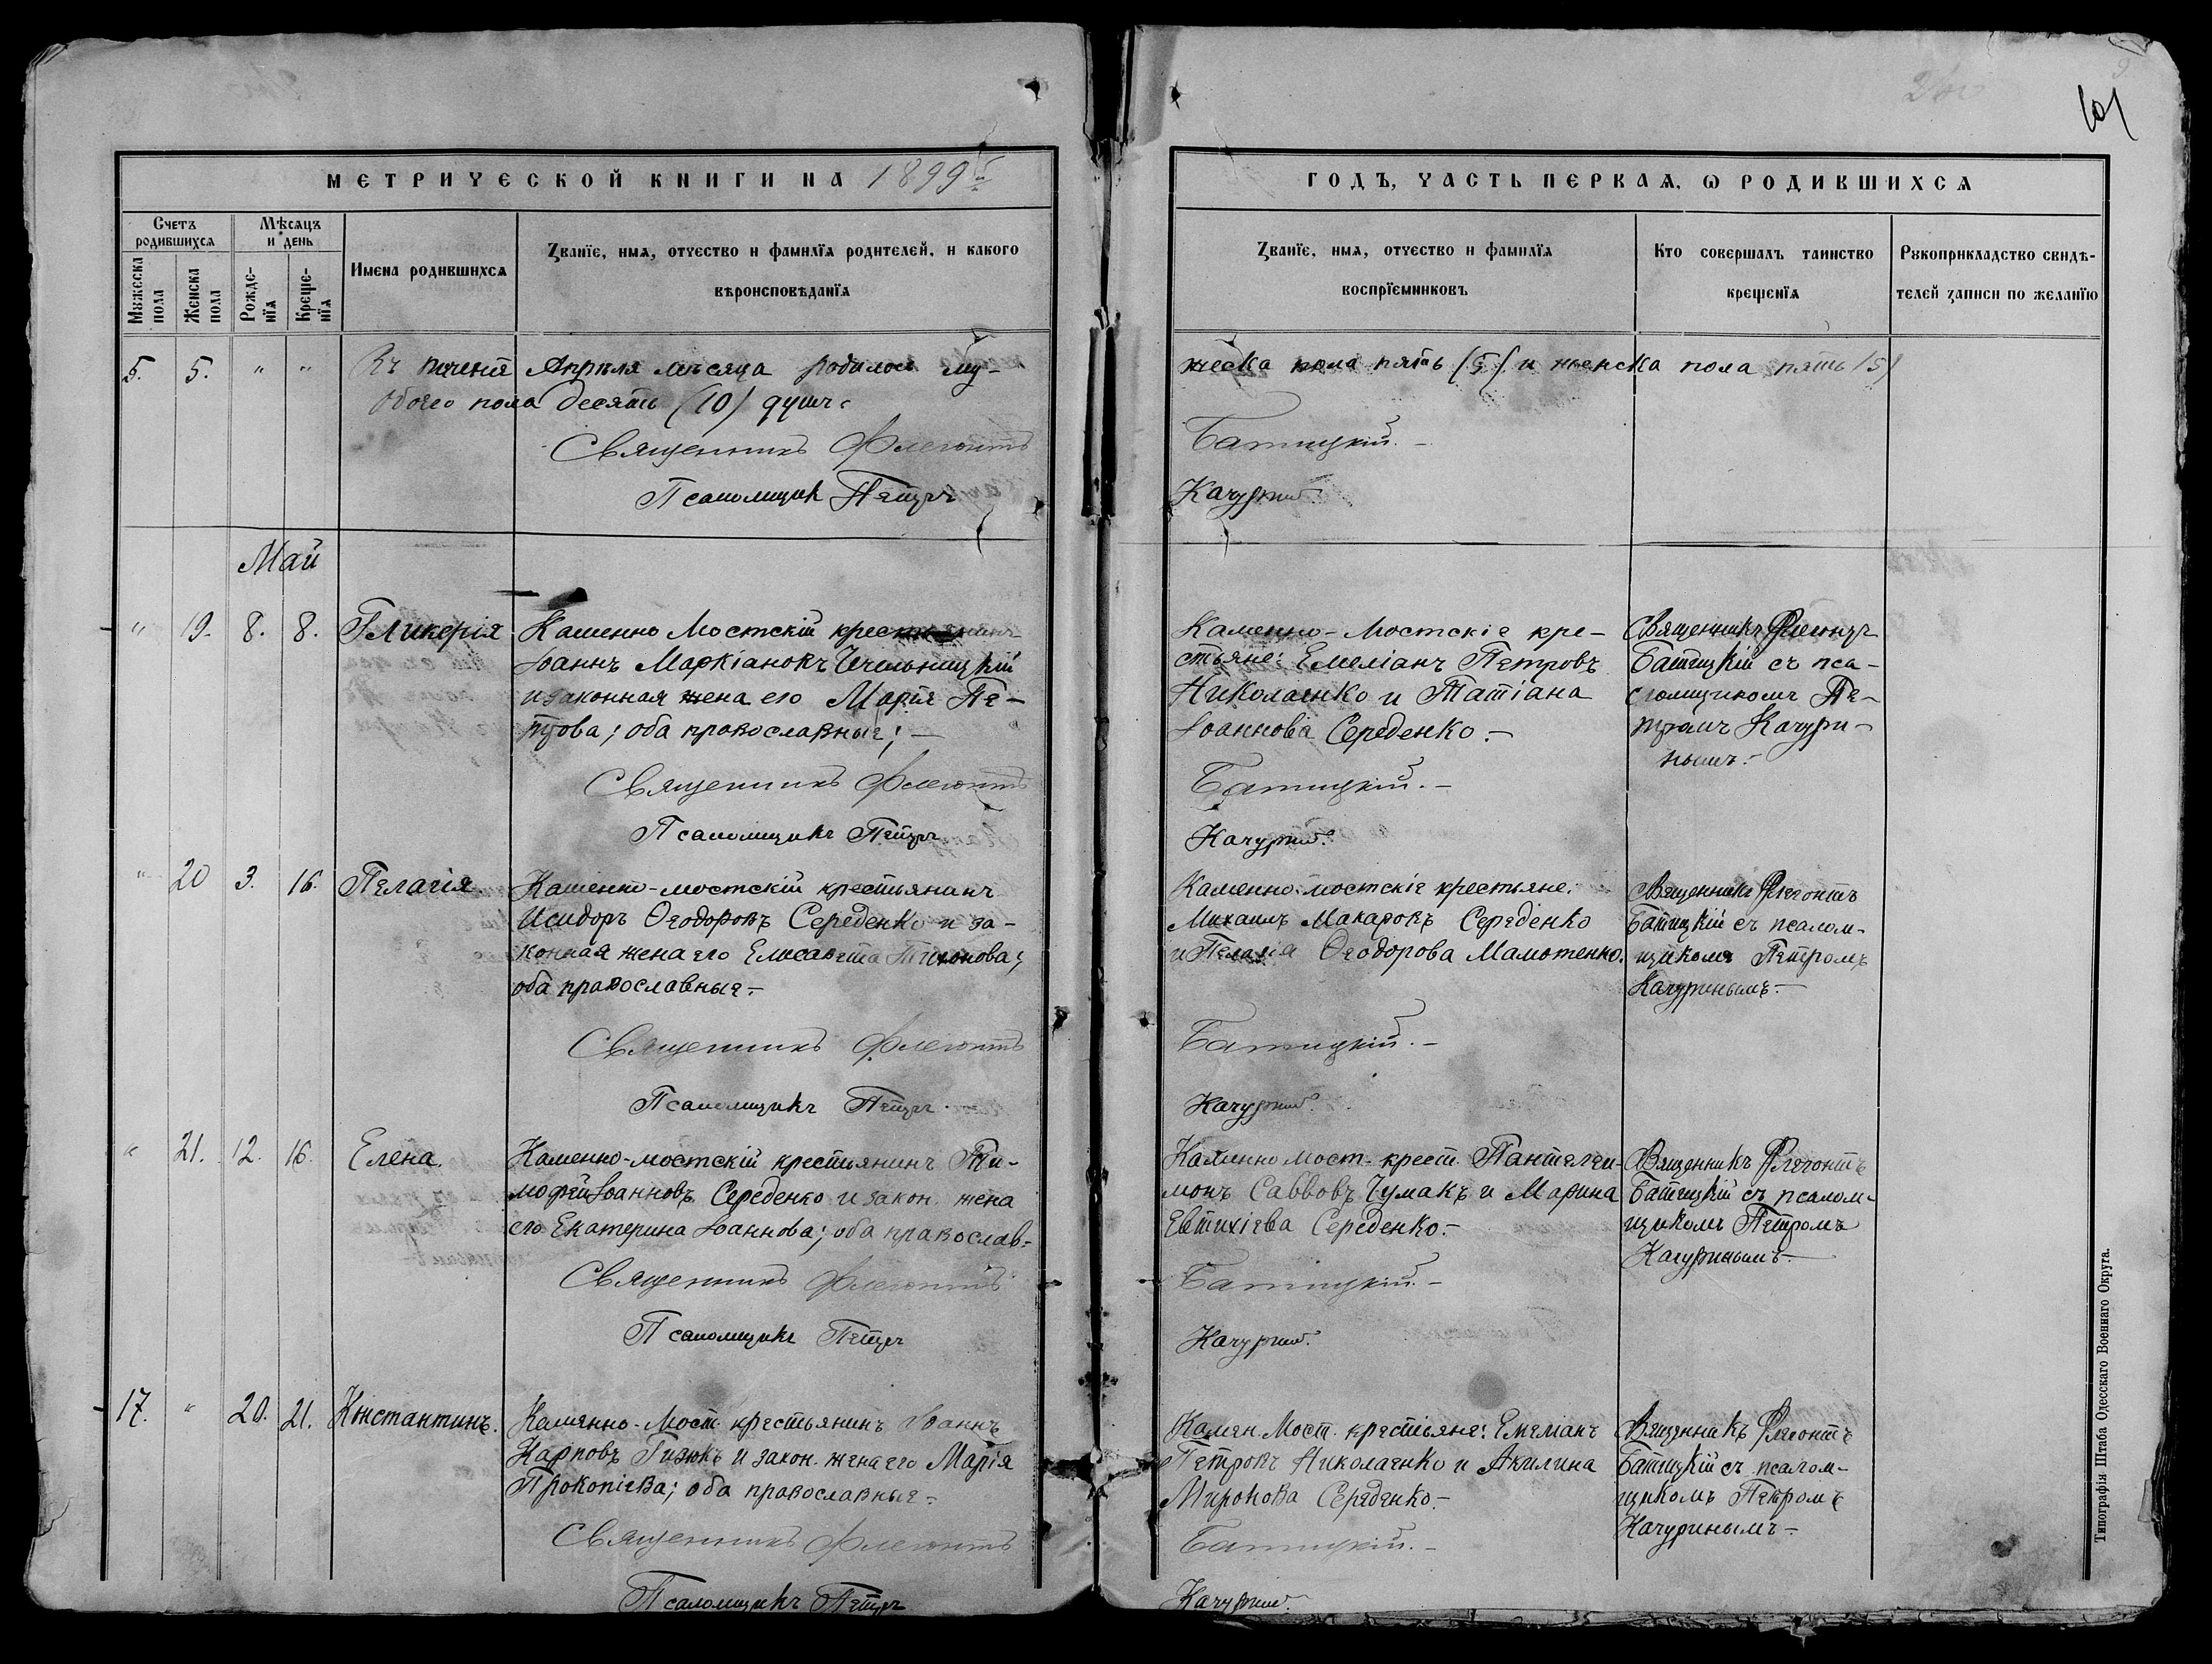 101
МЕТРИЧЕСКОЙ КНИГИ НА 1899
ГОДЪ, ЧАСТЬ ПЕРВАЯ, Ѡ РОДИВШИХСЯ
Счетъ родившихся
Мѣсяцъ и день
Мꙋжеска пола
Женска пола
Рожде-нїя
Креще-нїя
Имена родившихся
Званїе, имя, отчество и фамилїя родителей, и какого
вѣроисповѣданїя
Званїе, имя, отчество и фамилїя
воспрїемниковъ
Кто совершалъ таинство
крещенїя
Рꙋкоприкладство свидѣ-
телей записи по желанїю
5. 5. " " Въ теченіе Апрѣля мѣсяца родилось му-
жеска пола пять (5) и женска пола пять (5)
обоего пола десять (10) душъ.
Священникъ Флегонтъ Батицкій.-
Псаломщикъ Петръ Качуринъ.
Май
" 19. 8. 8. Гликерія
Каменно Мостскій
Іоаннъ Маркіановъ Чечельницкій
и законная жена его Марія Пе-
трова; оба православные;-
Каменно-Мостскіе кре-
стьяне: Емеліанъ Петровъ
Николаенко и Татіана
Іоаннова Середенко.-
Священникъ Флегонтъ
Батицкій съ пса-
ломщикомъ Пе-
тромъ Качури-
нымъ.-
Священникъ Флегонтъ Батицкій.-
Псаломщикъ Петръ Качуринъ.
" 20 3. 16. Пелагія.
Каменно-мостскій крестьянинъ
Исидоръ Ѳеодоровъ Середенко и за-
конная жена его Елисавета Тихонова;
оба православные.-
Каменно-мостскіе крестьяне:
Михаилъ Макаровъ Середенко
и Пелагія Ѳеодорова Мамотенко.
Священникъ Флегонтъ
Батицкій съ псалом-
щикомъ Петромъ
Качуринымъ.-
Священникъ Флегонтъ Батицкій.-
Псаломщикъ Петръ Качуринъ.
" 21. 12. 16. Елена.
Каменно-мостскій крестьянинъ Ти-
моѳей Іоанновъ Середенко и закон. жена
его Екатерина Іоаннова; оба православ.-
Каменно мост. крест. Пантелеи-
монъ Саввовъ Чумакъ и Марина
Евтихіева Середенко.-
Священникъ Флегонтъ
Батицкій съ псалом-
щикомъ Петромъ
Качуринымъ.-
Священникъ Флегонтъ Батицкій.-
Псаломщикъ Петръ Качуринъ.
17. " 20. 21. Константинъ.
Каменно-Мост. крестьянинъ Іоаннъ
Карповъ Гизюкъ и закон. жена его Марія
Прокопіева; оба православные.-
Камен. Мост. крестьяне: Емеліанъ
Петровъ Николаенко и Акилина
Миронова Середенко.-
Священникъ Флегонтъ
Батицкій съ псалом-
щикомъ Петромъ
Качуринымъ.-
Священникъ Флегонтъ Батицкій.-
Псаломщикъ Петръ Качуринъ.
Типографія Штаба Одесскаго Военнаго Округа.